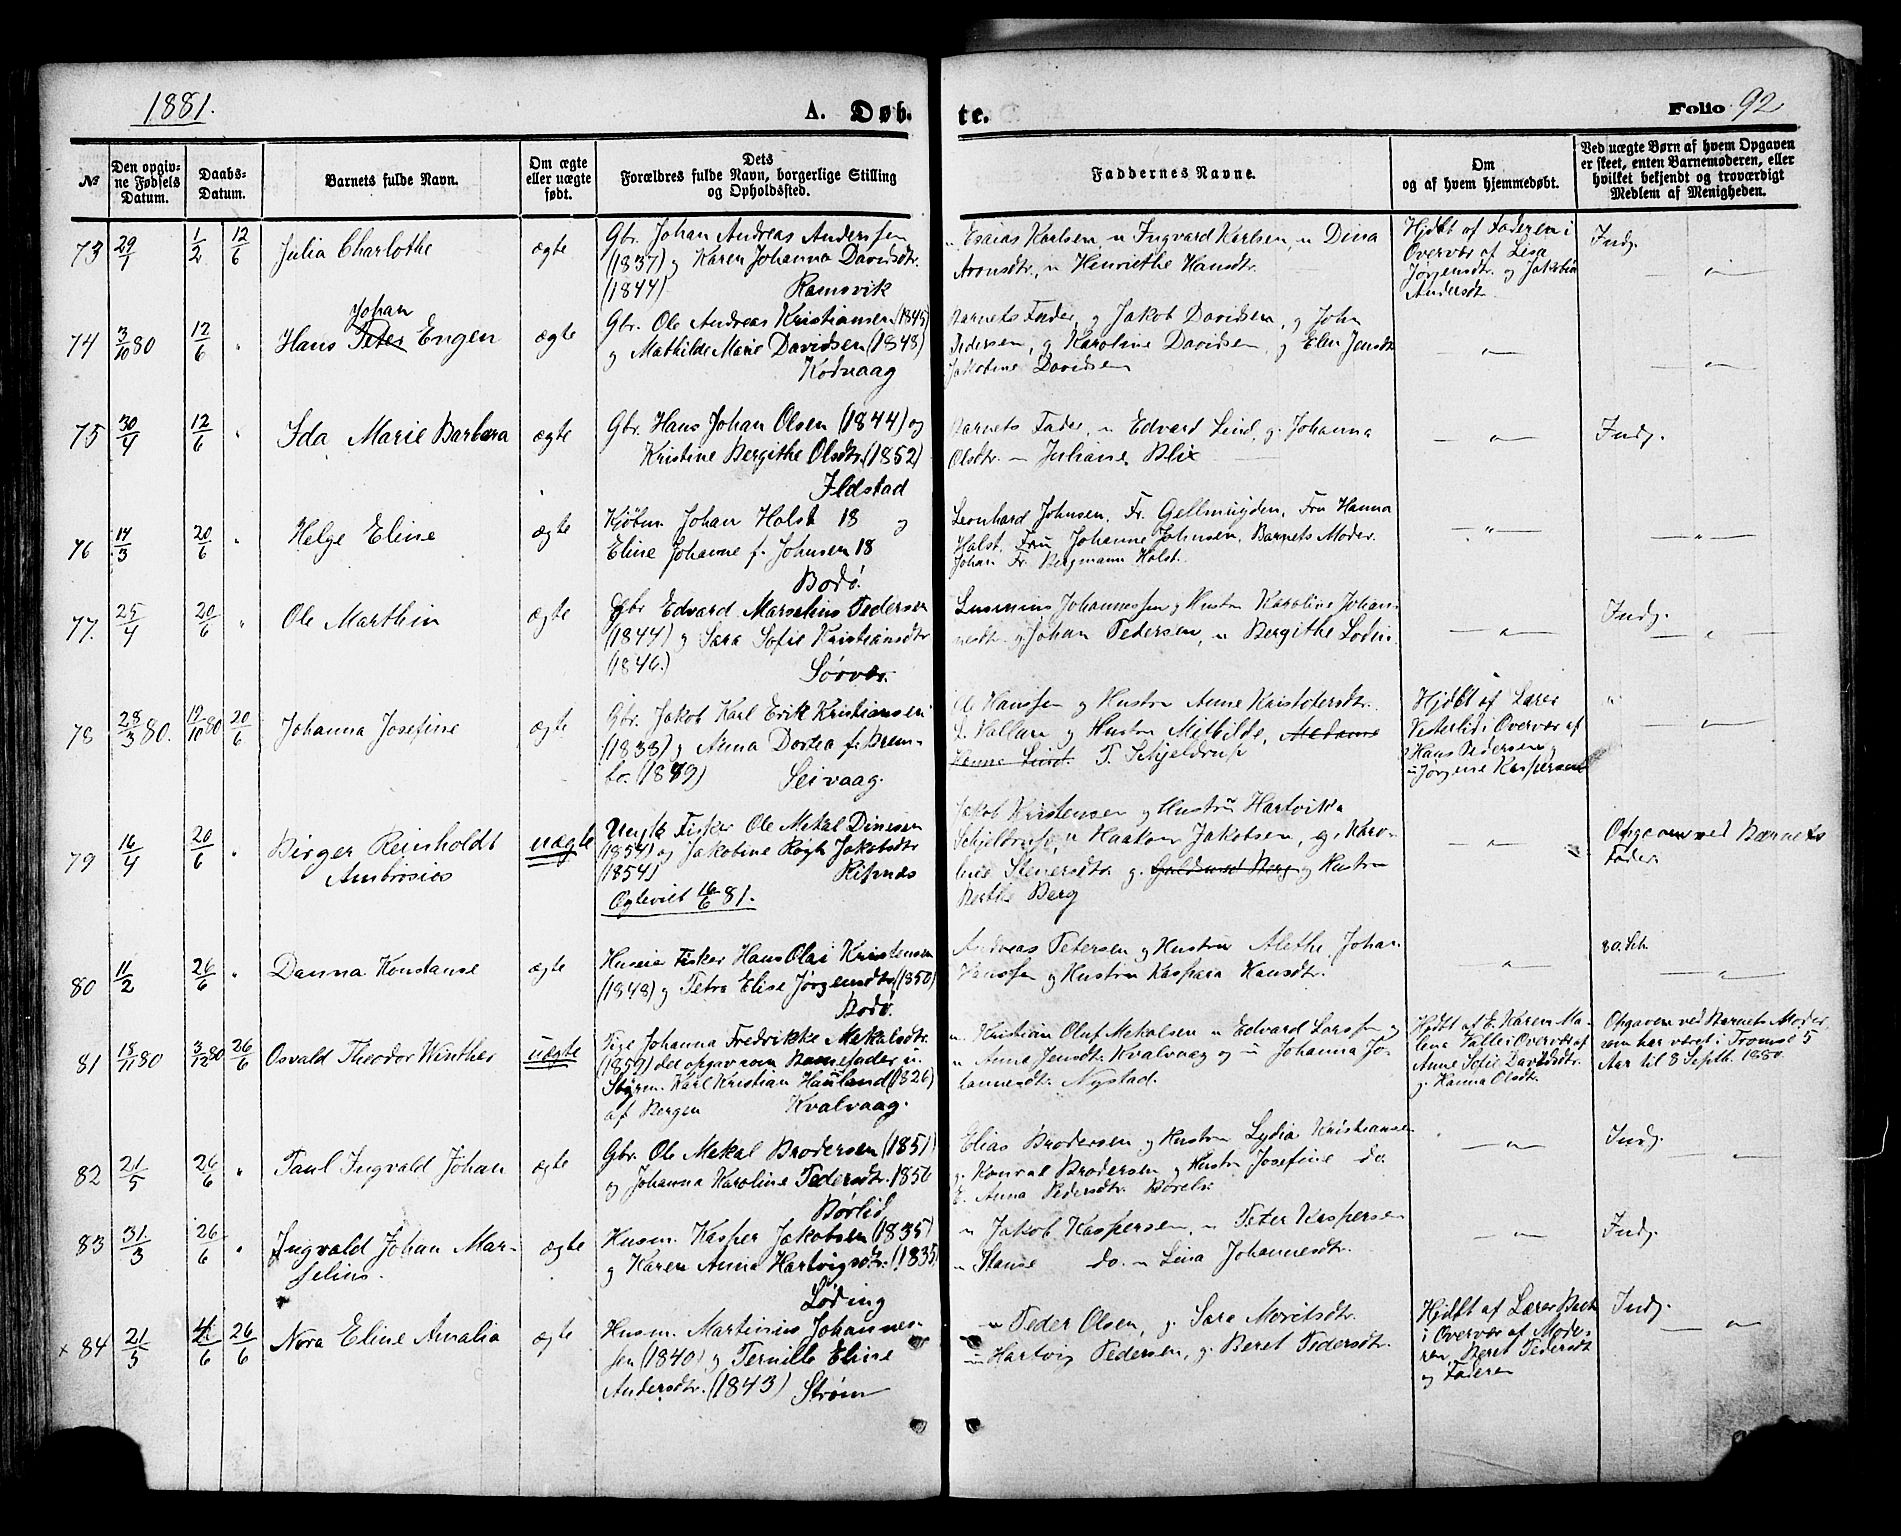 1881.
A. Døb.
te.
Folio 92
№
Den opgiv-
ne Fødsels
Datum.
Daabs-
Datum.
Barnets fulde Navn.
Om ægte
eller uægte
født.
Dets
Forældres fulde Navn, borgerlige Stilling
og Opholdssted.
Faddernes Navne.
Om
og af hvem hjemmedøbt.
Ved uægte Børn af hvem Opgaven
er skeet, enten Barnemoderen, eller
hvilket bekjendt og troværdigt
Medlem af Menigheden.
73 29/1 1/2 12/6 Julia Charlothe ægte
Gbr. Johan Andreas Anderssen
(1837) og Karen Johanna Davidsdtr.
(1844) Ramsvik
" Esaias Karlsen, " Ingvard Karlsen, " Dina
Aronsdtr, " Henriethe Hansdtr.
Hjdbt af Faderen i
Overvær af Lisa
Jørgensdtr. og Jakobin
Andersdtr.
Indj.
74 3/10 80 12/6 " Hans Peter Engen ægte
Johan
Gbr. Ole Andreas Kristiansen (1845)
og Mathilde Marie Davidsen (1848)
Kodvaag
Barnets Fader, og Jakob Davidsen, og John
Pedersen, og Karoline Davidsen, og Elen Jensdtr
Jakobine Davidsen
75 30/4 12/6 " Ida Marie Barbara ægte
Gbr. Hans Johan Olsen (1844) og
Kristine Bergithe Olsdtr. (1852)
Ildstad
Barnets Fader, " Edvard Lind, g. Johanna
Olsdtr. — Juliane Blix
Indj.
76 14/3 20/6 " Helge Eline ægte
Kjøbm. Johan Holst 18 og
Eline Johanne f. Johnsen 18
Bodø.
Leonhard Johnsen, Fr. Gellmuyden, Fru Hanna
Holst, Fru Johanne Johnsen, Barnets Moder.
Johan Fr. Bergmann Holst.
77. 25/4 20/6 " Ole Marthin ægte
Gbr Edvard Marselius Pedersen
(1844) og Sara Sofie Kristiansdtr
(1846.) Sørvær.
Johannessen og Hustru Karoline Johan-
nesdtr. og Johan Pedersen, " Bergithe
Indj.
78 28/3 80. 19/10 80 20/6 Johanna Josefine ægte
Gbr. Jakob Karl Erik Kristiansen
(1833) og Anna Dortea f. Brem-
bo. (1849) Seivaag.
Hanssen og Hustru Anne Kristofersdtr.
og Hustru Mithilde, Madame
Hanne Lind. T. Schjeldrup
Hjdbt af Lærer
Vesterlid i Overvær af
Hans Pedersen og
Jørgine Kaspersen
79 16/4 26/6 " Birger Reinholdt
Ambrosius
uægte
Ungk. Fisker Ole Mekal Dinesen
(1854) og Jakobine Jakobsdtr
(1854) Ripnæs
Ægteviet 16/6 81.
Jakob Kristensen og Hustru Hartvikka
Schjeldrup, " Haakon Jakobsen, g. Karo-
line Stenersdtr g. og Hustru
Berthe Berg
Opgaven ved Barnets
Fader
80 11/2 26/6 " Danna Konstanse ægte
Huseie Fisker Hans Olai Kristensen
(1848) og Petra Elise Jørgensdtr. (1850)
Bodø.
Andreas Petersen og Hustru Alethe, Johan
Hanssen og Hustru Kaspara Hansdtr.
81 18/11 80 3/12 80 26/6 Osvald Theodor Winther uægte
Pige Johanna Fredrikke Mekalsdtr.
(1859) der opgav som Barnefader u.
Styrm. Karl Kristian Hauland (1826)
af Bergen Kvalvaag.
" Kristian Oluf Mekalsen " Edvard Larssen og
" Anna Jensdtr. Kvalvaag og " Johanna Jo-
hannesdtr. Nystad.
Hjdbt af E. Karen Ma-
lena i Overvær af
Anne Sofie Davidsdtr.
g. Hanna Olsdtr.
Opgaven ved Barnets Moder
som har været i Tromsø 5
Aar til 8 Septb. 1880.
82 21/5 26/6 " Paul Ingvald Johan ægte
Gbr. Ole Mekal Brodersen (1851)
og Johanna Karoline Pedersdtr. 1850
Børlid
Elias Brodersen og Hustru Lydia Kristiansen
g. Konrad Brodersen og Hustru Josefine do.
E. Anna Pedersdtr.
Indj.
83 31/3 26/6 " Ingvald Johan Mar-
selius.
ægte
Husm. Kasper Jakobsen (1835)
og Karen Anna Hartvigsdtr. (1835)
Løding
" Jakob Kaspersen, " Peter Kaspersen
" Hanse do. " Lina Johannesdtr.
Indj.
x 84 21/5 4/6 26/6 Nora Eline Amalia ægte
Husm. Martinius Johannes-
sen (1840) og Pernille Eline
Andersdtr. (1843) Strøm
" Peder Olsen, g. Sara Moritsdtr.
" Hartvig Pedersen, g. Beret Pedersdtr.
Hjdbt af Lærer
i Overvær af Mode-
ren, Beret Pedersdtr
og Faderen
Indj.